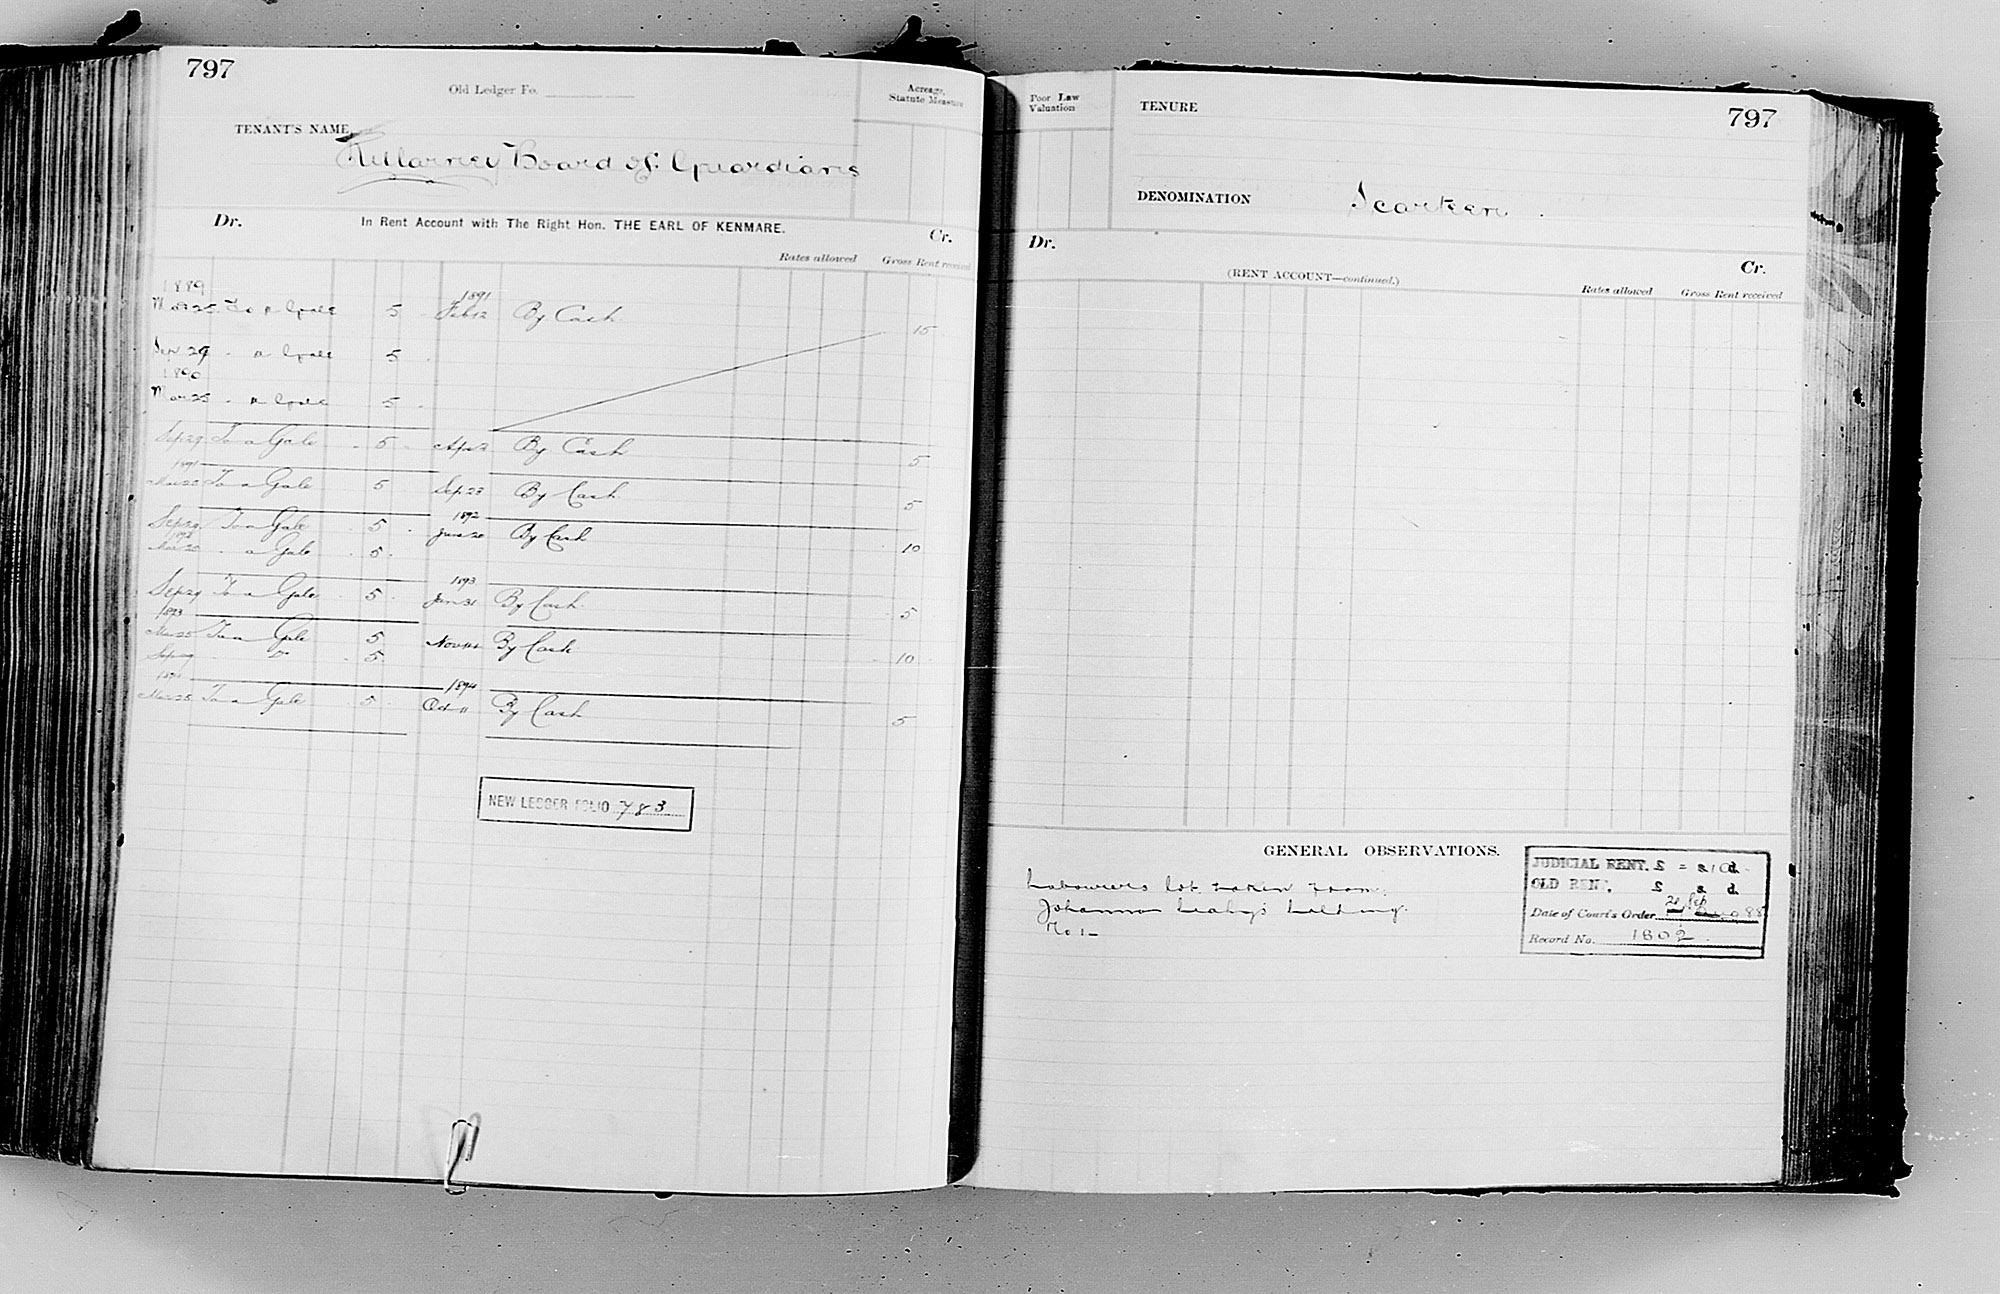 797
Old Ledger Fo.
Acreage, Statute Measure
TENANT'S NAME
Killarney Board of Guardians
Dr. In Rent Account with The Right Hon. THE EARL OF KENMARE. Cr.
Rates allowed Gross Rent received
1889 1891
Mar 25 To a Gale 5 Feb 12 By Cash 15
Sep 29 " a Gale 5
1890
Mar 25 " a Gale 5
Sep 29 To a Gale 5 Apr 2 By Cash 5
1891
Mar 25 To a Gale 5 Sep 23 By Cash 5
1892
Sep 29 To a Gale 5 June 20 By Cash 10
1892
Mar 25 " a Gale 5
1893
Sep 29 To a Gale 5 Jan 31 By Cash 5
1893
Mar 25 To a Gale 5 Nov By Cash 10
Sep 29 Do 5
1894 1894
Mar 25 To a Gale 5 Oct 11 By Cash 5
NEW LEDGER FOLIO 783
Poor Law Valuation
TENURE
797
DENOMINATION Scarteen
Dr. Cr.
(RENT ACCOUNT—continued.)
Rates allowed Gross Rent received
GENERAL OBSERVATIONS.
Labourers lot taken from
Johannah Leahy's holding.
No 1
JUDICIAL RENT. £ = s 10 d
OLD RENT. £ s d
Date of Court's Order 20 Sep 88
Record No. 1802